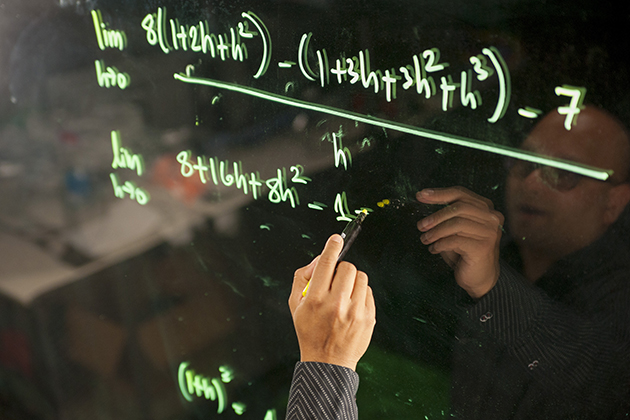 lim h→0 8(1+2h+h²) - (1+3h+3h²+h³) - 7
h
lim h→0 8+16h+8h² - 1 -
(1+h)